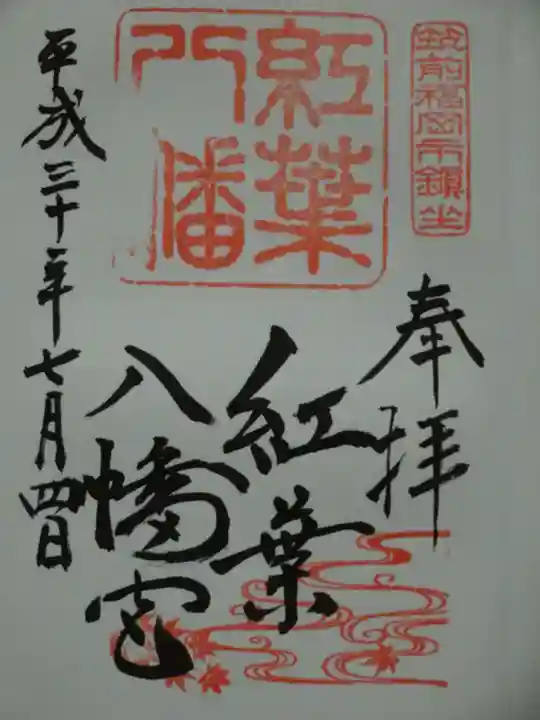 筑前福岡市鎮坐
奉拝
紅葉
八幡
紅葉
八幡宮
平成三十年七月四日